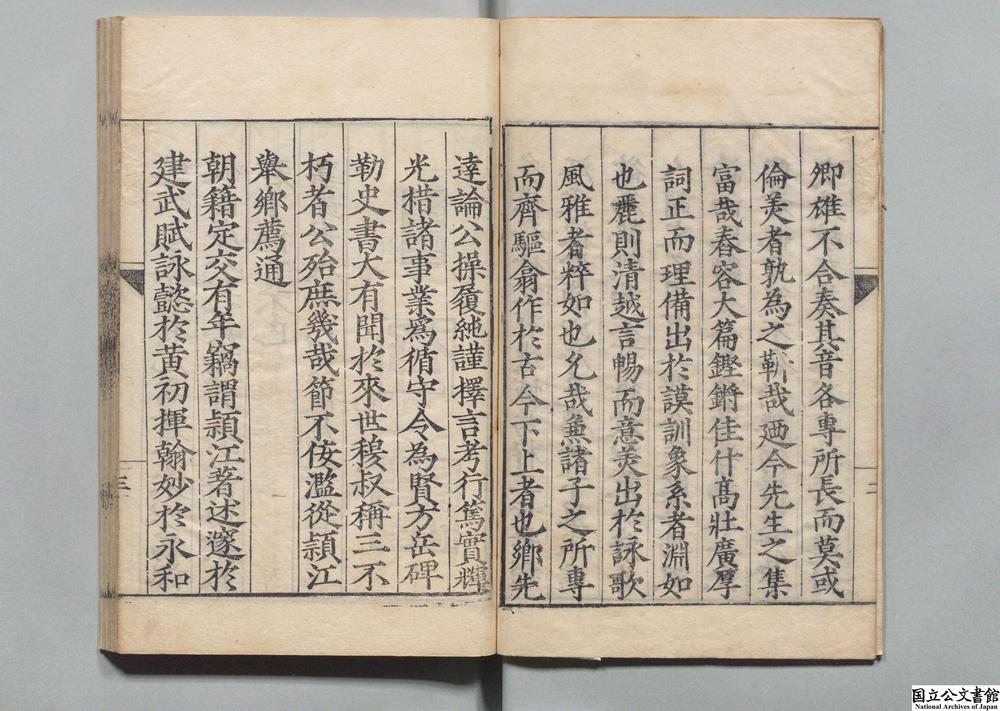 卿雄不合奏其音各專所長而莫或
倫美者孰為之靳哉廼今先生之集
富哉舂容大篇鏗鏘佳什高壯廣厚
詞正而理備出於謨訓象系者淵如
也麗則清越言暢而意美出於詠歌
風雅者粹如也允哉兼諸子之所專
而齊驅翕作於古今下上者也鄉先
二
逹論公操履純謹擇言考行篤實輝
光措諸事業爲循守令為賢方岳碑
勒史書大有聞於來世穆叔稱三不
朽者公殆庶幾哉節不佞濫從頴江
舉鄉薦通
朝籍定交有年竊謂頴江著述邃於
建武賦詠懿於黃初揮翰妙於永和
三
国立公文書館
National Archives of Japan